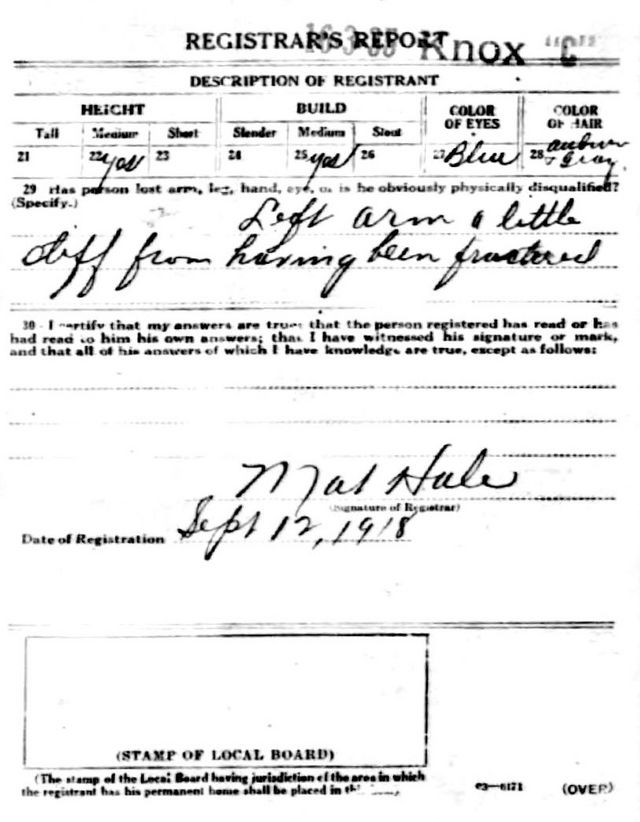 16-3-35 Knox "C"
REGISTRAR'S REPORT
DESCRIPTION OF REGISTRANT
HEIGHT BUILD COLOR OF EYES COLOR OF HAIR
Tall Medium Short Slender Medium Stout
21 22 yes 23 24 25 yes 26 27 Blue 28 auburn & Gray
29 Has person lost arm, leg, hand, eye, or is he obviously physically disqualified?
(Specify.)
Left arm a little
stiff from having been fractured
30 I certify that my answers are true; that the person registered has read or has
had read to him his own answers; that I have witnessed his signature or mark,
and that all of his answers of which I have knowledge are true, except as follows:
Mat Hale
(Signature of Registrar)
Date of Registration Sept 12, 1918
(STAMP OF LOCAL BOARD)
(The stamp of the Local Board having jurisdiction of the area in which
the registrant has his permanent home shall be placed in
03—6171 (OVER)